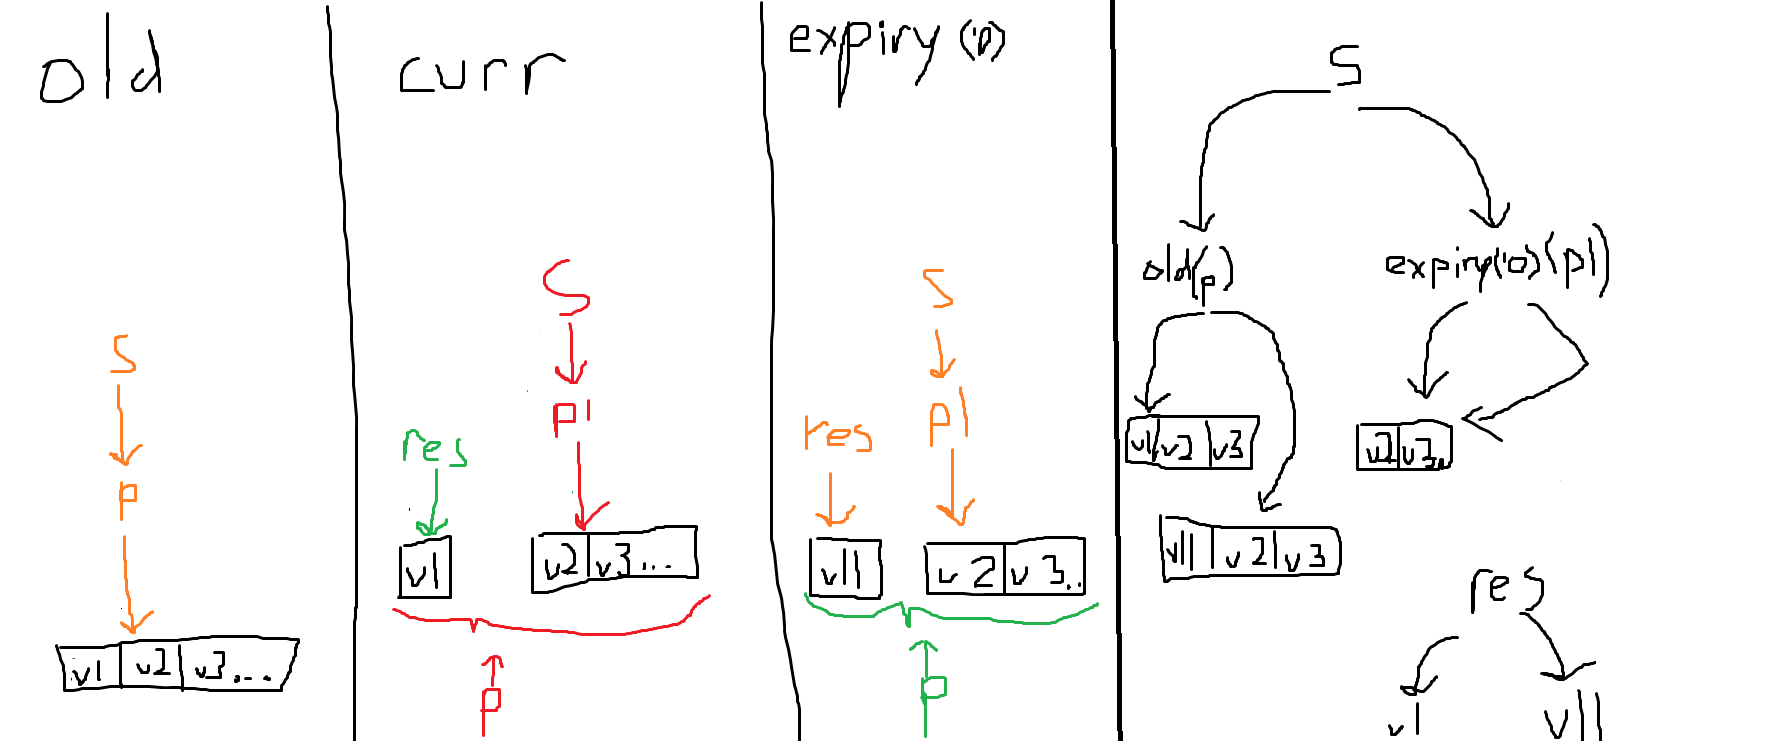 old
S
p
v1 v2 v3...
curr
S
p'
res
v1 v2 v3...
p
expiry('0)
S
p1
res
v11 v2 v3..
p
S
old(p)
expiry('0)(p1)
v1 v2 v3
v2 v3..
v11 v2 v3
res
v1
v11